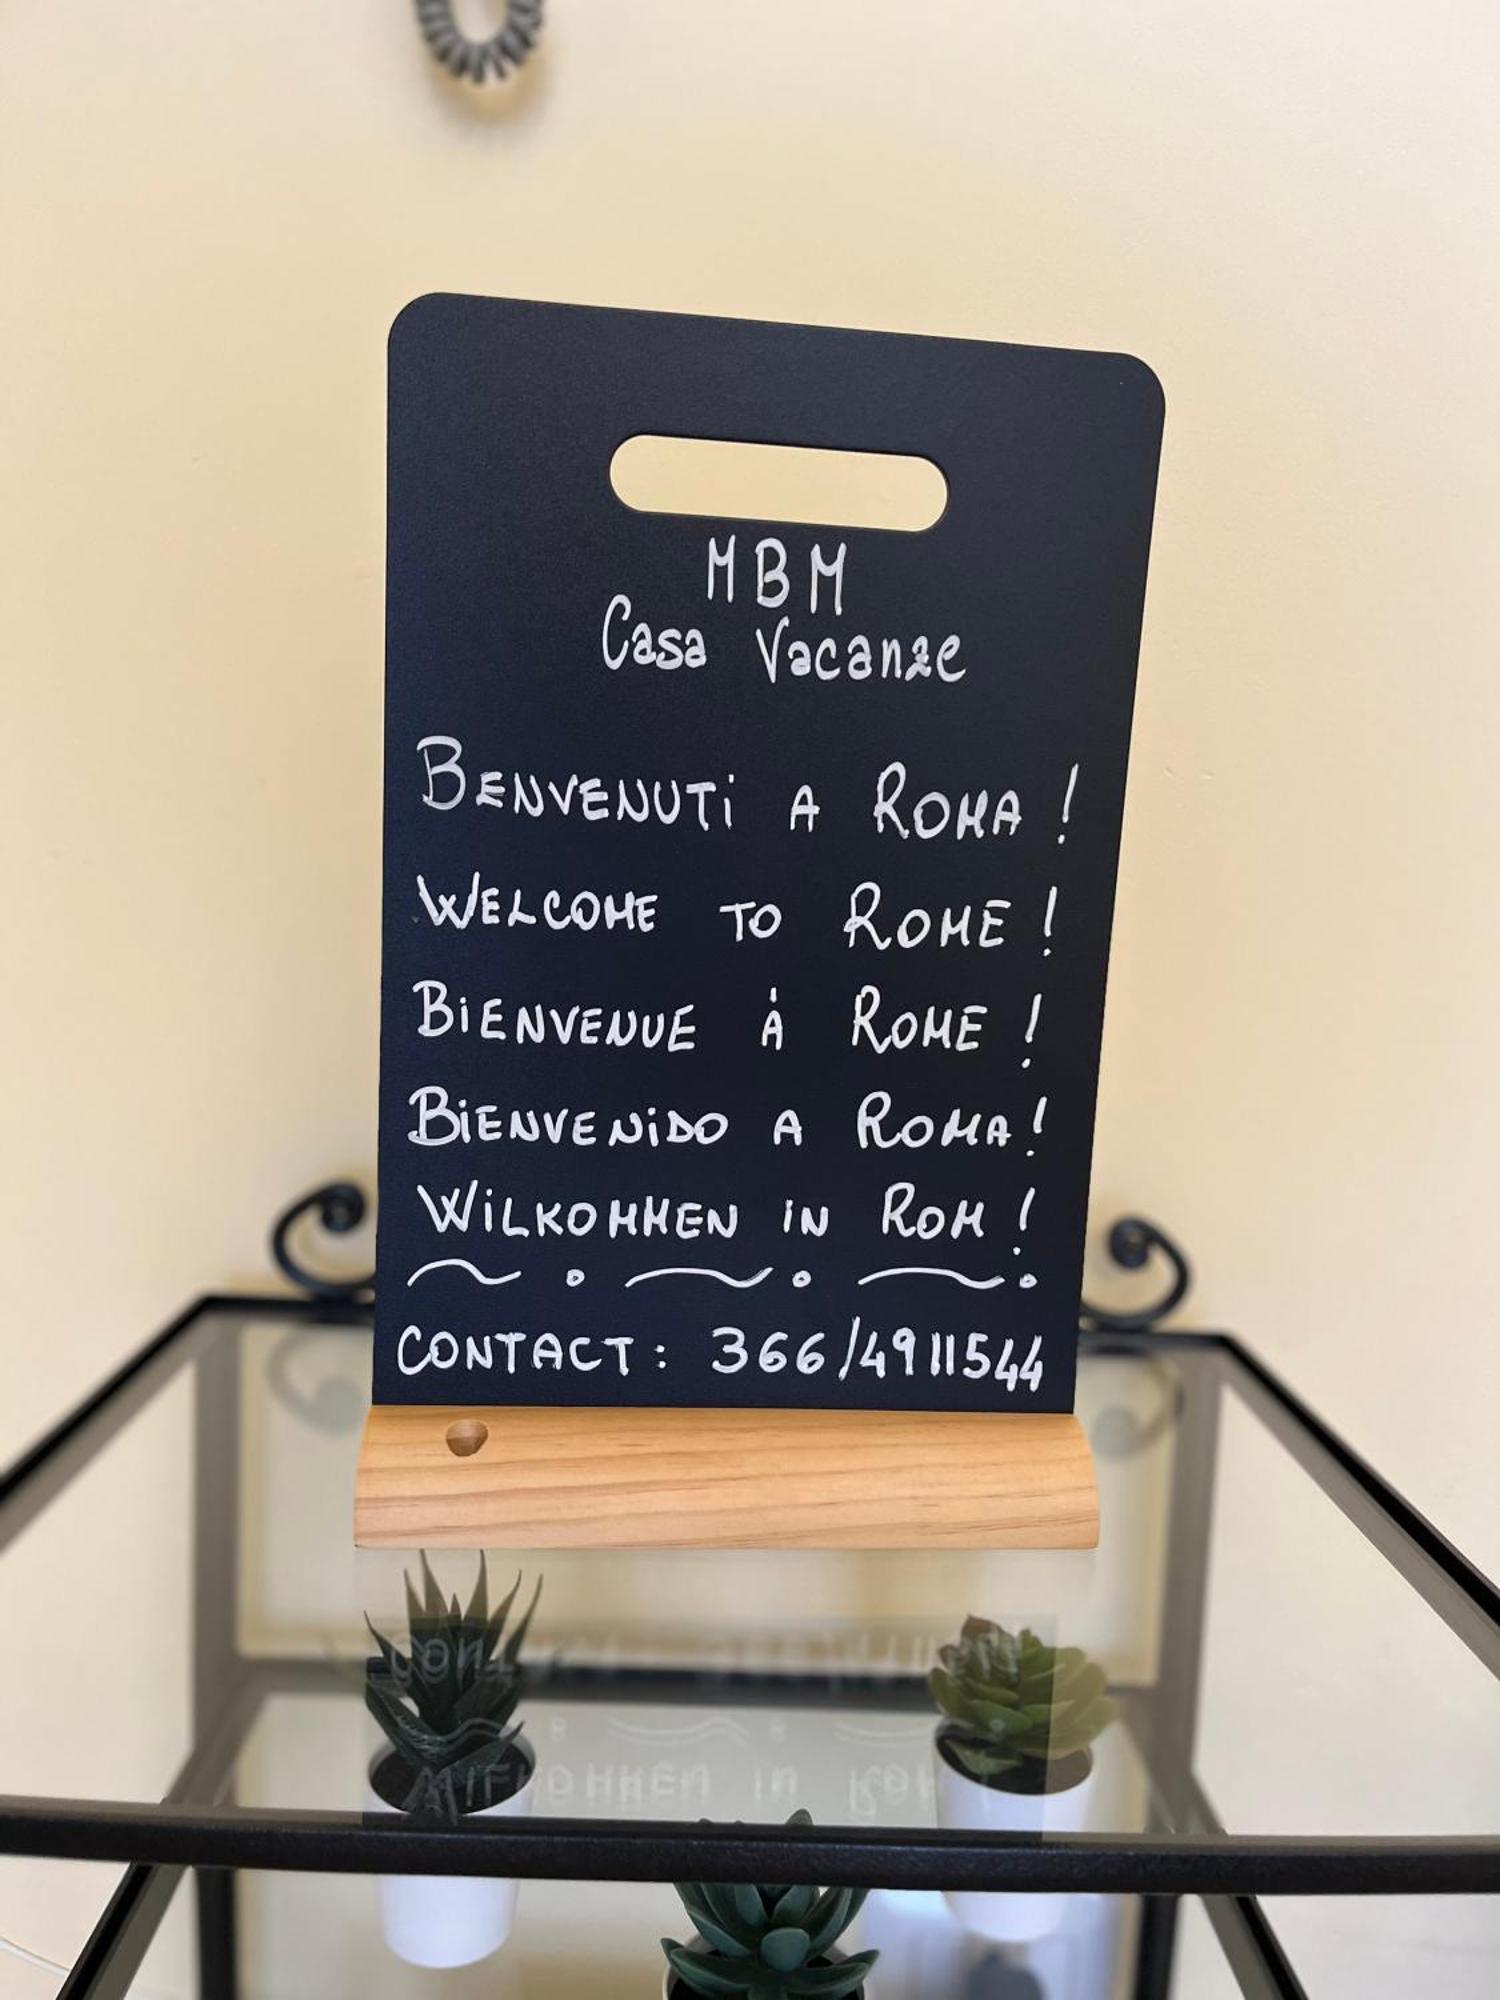 MBM
Casa Vacanze
BENVENUTi A ROMA !
WELCOME TO ROME !
BiENVENUE À ROME !
BiENVENiDO A ROMA !
WiLKOMMEN iN ROM !
CONTACT : 366/4911544